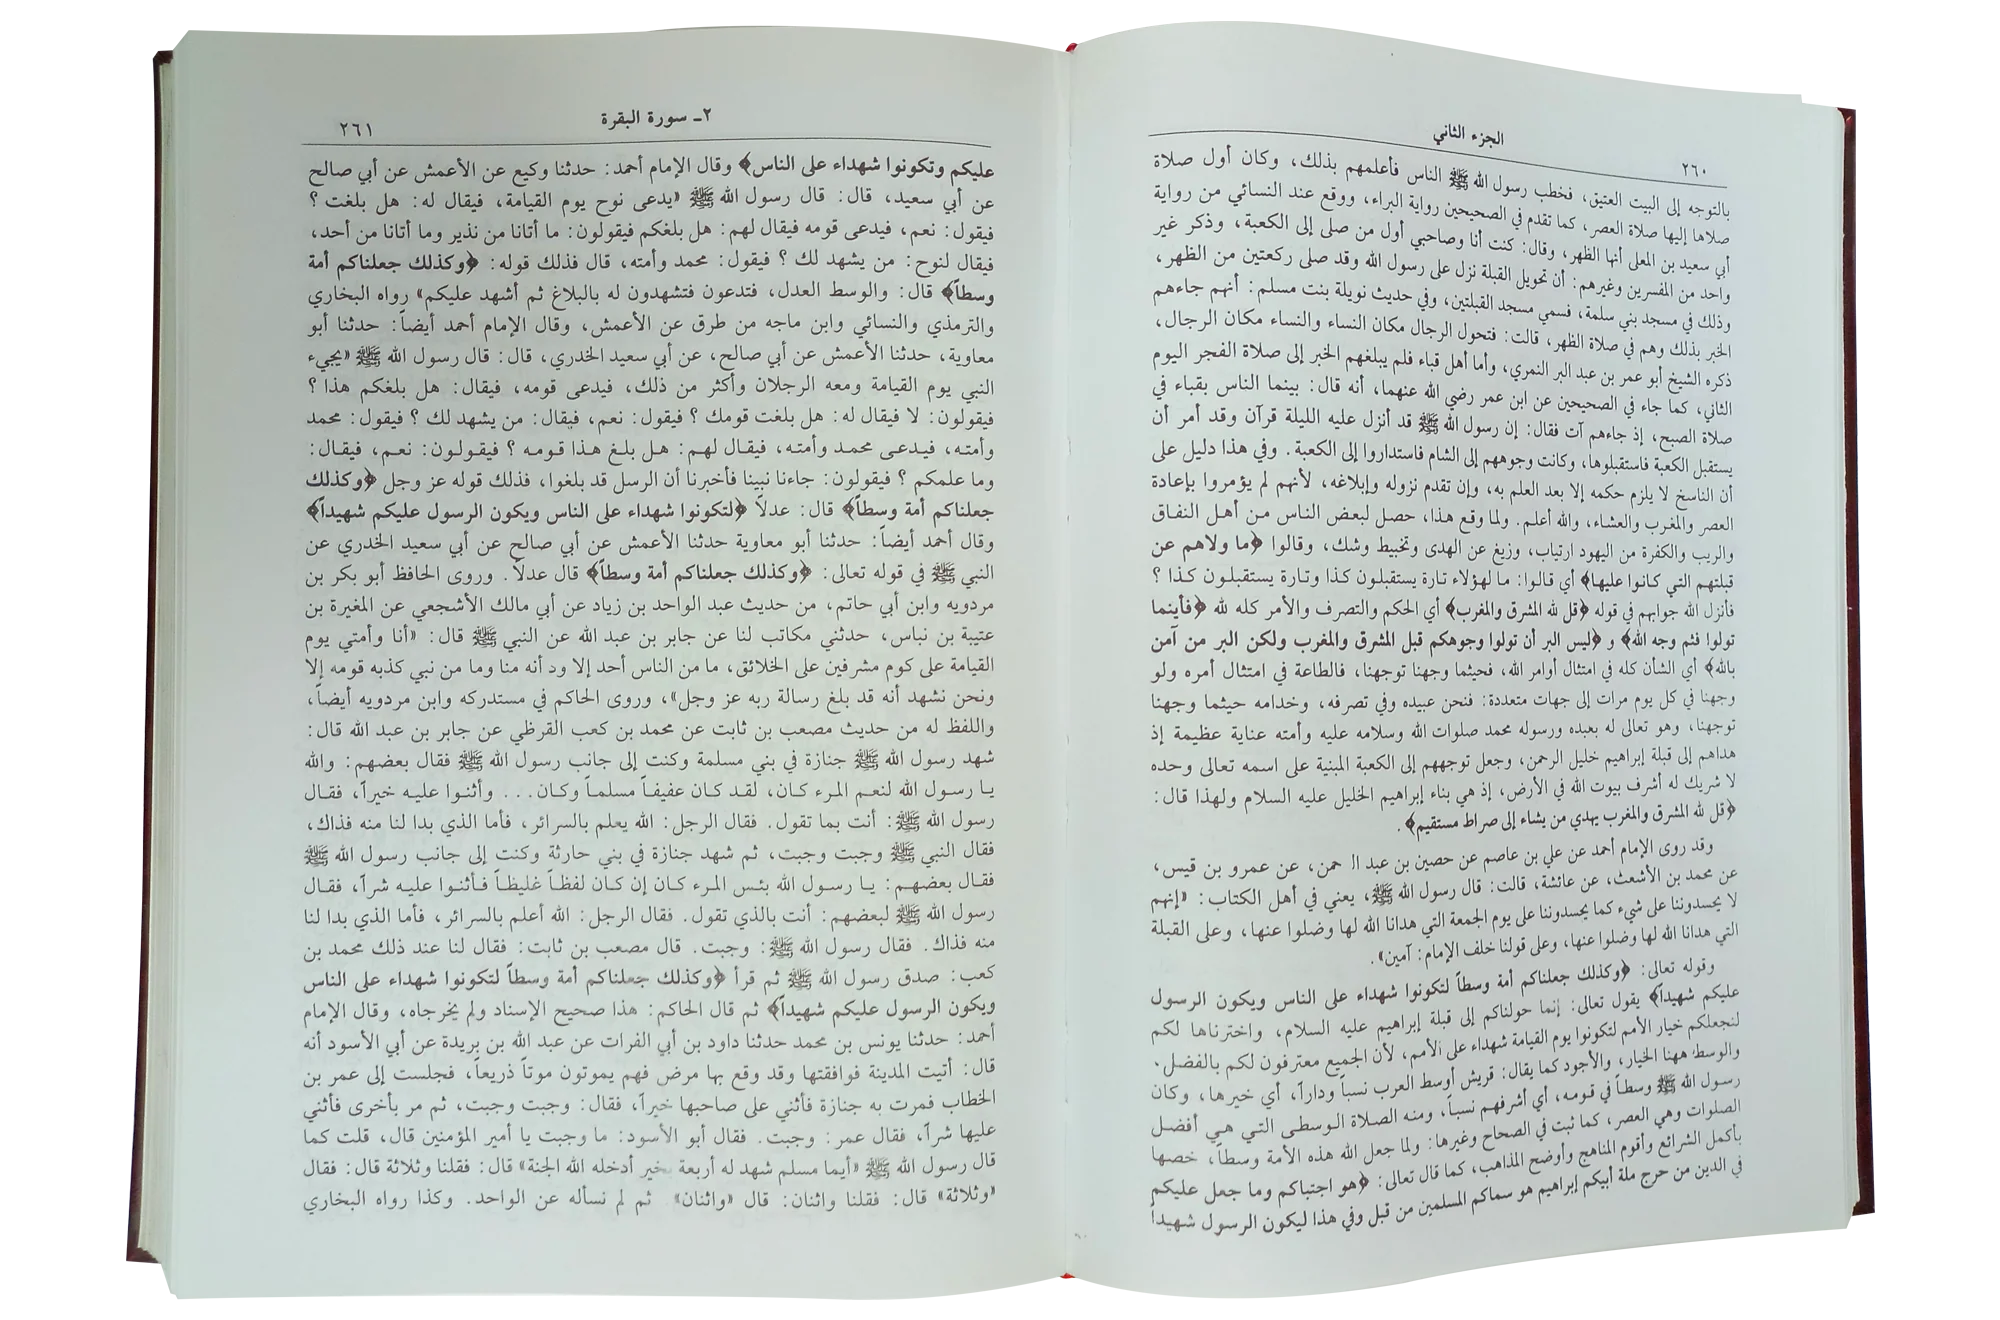 الجزء الثاني
٢٦٠
بالتوجه إلى البيت العتيق، فخطب رسول الله ﷺ الناس فأعلمهم بذلك، وكان أول صلاة
صلاها إليها صلاة العصر، كما تقدم في الصحيحين رواية البراء، ووقع عند النسائي من رواية
أبي سعيد بن المعلى أنها الظهر، وقال: كنت أنا وصاحبي أول من صلى إلى الكعبة، وذكر غير
واحد من المفسرين وغيرهم: أن تحويل القبلة نزل على رسول الله وقد صلى ركعتين من الظهر،
وذلك في مسجد بني سلمة، فسمي مسجد القبلتين، وفي حديث نويلة بنت مسلم: أنهم جاءهم
الخبر بذلك وهم في صلاة الظهر، قالت: فتحول الرجال مكان النساء والنساء مكان الرجال،
ذكره الشيخ أبو عمر بن عبد البر النمري، وأما أهل قباء فلم يبلغهم الخبر إلى صلاة الفجر اليوم
الثاني، كما جاء في الصحيحين عن ابن عمر رضي الله عنهما، أنه قال: بينما الناس بقباء في
صلاة الصبح، إذ جاءهم آت فقال: إن رسول الله ﷺ قد أنزل عليه الليلة قرآن وقد أمر أن
يستقبل الكعبة فاستقبلوها، وكانت وجوههم إلى الشام فاستداروا إلى الكعبة. وفي هذا دليل على
أن الناسخ لا يلزم حكمه إلا بعد العلم به، وإن تقدم نزوله وإبلاغه، لأنهم لم يؤمروا بإعادة
العصر والمغرب والعشاء، والله أعلم. ولما وقع هذا، حصل لبعض الناس من أهل النفاق
والريب والكفرة من اليهود ارتياب، وزيغ عن الهدى وتخبيط وشك، وقالوا ﴿ما ولاهم عن
قبلتهم التي كانوا عليها﴾ أي قالوا: ما لهؤلاء تارة يستقبلون كذا وتارة يستقبلون كذا؟
فأنزل الله جوابهم في قوله ﴿قل لله المشرق والمغرب﴾ أي الحكم والتصرف والأمر كله لله ﴿فأينما
تولوا فثم وجه الله﴾ و ﴿ليس البر أن تولوا وجوهكم قبل المشرق والمغرب ولكن البر من آمن
بالله﴾ أي الشأن كله في امتثال أوامر الله، فحيثما وجهنا توجهنا، فالطاعة في امتثال أمره ولو
وجهنا في كل يوم مرات إلى جهات متعددة: فنحن عبيده وفي تصرفه، وخدامه حيثما وجهنا
توجهنا، وهو تعالى له بعبده ورسوله محمد صلوات الله وسلامه عليه وأمته عناية عظيمة إذ
هداهم إلى قبلة إبراهيم خليل الرحمن، وجعل توجههم إلى الكعبة المبنية على اسمه تعالى وحده
لا شريك له أشرف بيوت الله في الأرض، إذ هي بناء إبراهيم الخليل عليه السلام ولهذا قال:
﴿قل لله المشرق والمغرب يهدي من يشاء إلى صراط مستقيم﴾.
وقد روى الإمام أحمد عن علي بن عاصم عن حصين بن عبد الـ حمن، عن عمرو بن قيس،
عن محمد بن الأشعث، عن عائشة، قالت: قال رسول الله ﷺ، يعني في أهل الكتاب: «إنهم
لا يحسدوننا على شيء كما يحسدوننا على يوم الجمعة التي هدانا الله لها وضلوا عنها، وعلى القبلة
التي هدانا الله لها وضلوا عنها، وعلى قولنا خلف الإمام: آمين».
وقوله تعالى: ﴿وكذلك جعلناكم أمة وسطاً لتكونوا شهداء على الناس ويكون الرسول
عليكم شهيداً﴾ يقول تعالى: إنما حولناكم إلى قبلة إبراهيم عليه السلام، واخترناها لكم
لنجعلكم خيار الأمم لتكونوا يوم القيامة شهداء على الأمم، لأن الجميع معترفون لكم بالفضل.
والوسط ههنا الخيار، والأجود كما يقال: قريش أوسط العرب نسباً وداراً، أي خيرها، وكان
رسول الله ﷺ وسطاً في قومه، أي أشرفهم نسباً، ومنه الصلاة الوسطى التي هي أفضل
الصلوات وهي العصر، كما ثبت في الصحاح وغيرها: ولما جعل الله هذه الأمة وسطاً، خصها
بأكمل الشرائع وأقوم المناهج وأوضح المذاهب، كما قال تعالى: ﴿هو اجتباكم وما جعل عليكم
في الدين من حرج ملة أبيكم إبراهيم هو سماكم المسلمين من قبل وفي هذا ليكون الرسول شهيداً
٢ـ سورة البقرة
٢٦١
عليكم وتكونوا شهداء على الناس﴾ وقال الإمام أحمد: حدثنا وكيع عن الأعمش عن أبي صالح
عن أبي سعيد، قال: قال رسول الله ﷺ «يدعى نوح يوم القيامة، فيقال له: هل بلغت؟
فيقول: نعم، فيدعى قومه فيقال لهم: هل بلغكم فيقولون: ما أتانا من نذير وما أتانا من أحد،
فيقال لنوح: من يشهد لك؟ فيقول: محمد وأمته، قال فذلك قوله: ﴿وكذلك جعلناكم أمة
وسطاً﴾ قال: والوسط العدل، فتدعون فتشهدون له بالبلاغ ثم أشهد عليكم» رواه البخاري
والترمذي والنسائي وابن ماجه من طرق عن الأعمش، وقال الإمام أحمد أيضاً: حدثنا أبو
معاوية، حدثنا الأعمش عن أبي صالح، عن أبي سعيد الخدري، قال: قال رسول الله ﷺ «يجيء
النبي يوم القيامة ومعه الرجلان وأكثر من ذلك، فيدعى قومه، فيقال: هل بلغكم هذا؟
فيقولون: لا فيقال له: هل بلغت قومك؟ فيقول: نعم، فيقال: من يشهد لك؟ فيقول: محمد
وأمته، فيدعى محمد وأمته، فيقال لهم: هل بلغ هذا قومه؟ فيقولون: نعم، فيقال:
وما علمكم؟ فيقولون: جاءنا نبينا فأخبرنا أن الرسل قد بلغوا، فذلك قوله عز وجل ﴿وكذلك
جعلناكم أمة وسطاً﴾ قال: عدلاً ﴿لتكونوا شهداء على الناس ويكون الرسول عليكم شهيداً﴾
وقال أحمد أيضاً: حدثنا أبو معاوية حدثنا الأعمش عن أبي صالح عن أبي سعيد الخدري عن
النبي ﷺ في قوله تعالى: ﴿وكذلك جعلناكم أمة وسطاً﴾ قال عدلاً. وروى الحافظ أبو بكر بن
مردويه وابن أبي حاتم، من حديث عبد الواحد بن زياد عن أبي مالك الأشجعي عن المغيرة بن
عتيبة بن نباس، حدثني مكاتب لنا عن جابر بن عبد الله عن النبي ﷺ قال: «أنا وأمتي يوم
القيامة على كوم مشرفين على الخلائق، ما من الناس أحد إلا ود أنه منا وما من نبي كذبه قومه إلا
ونحن نشهد أنه قد بلغ رسالة ربه عز وجل»، وروى الحاكم في مستدركه وابن مردويه أيضاً،
واللفظ له من حديث مصعب بن ثابت عن محمد بن كعب القرظي عن جابر بن عبد الله قال:
شهد رسول الله ﷺ جنازة في بني مسلمة وكنت إلى جانب رسول الله ﷺ فقال بعضهم: والله
يا رسول الله لنعم المرء كان، لقد كان عفيفاً مسلماً وكان... وأثنوا عليه خيراً، فقال
رسول الله ﷺ: أنت بما تقول. فقال الرجل: الله يعلم بالسرائر، فأما الذي بدا لنا منه فذاك،
فقال النبي ﷺ وجبت وجبت، ثم شهد جنازة في بني حارثة وكنت إلى جانب رسول الله ﷺ
فقال بعضهم: يا رسول الله بئس المرء كان إن كان لفظاً غليظاً فأثنوا عليه شراً، فقال
رسول الله ﷺ لبعضهم: أنت بالذي تقول. فقال الرجل: الله أعلم بالسرائر، فأما الذي بدا لنا
منه فذاك. فقال رسول الله ﷺ: وجبت. قال مصعب بن ثابت: فقال لنا عند ذلك محمد بن
كعب: صدق رسول الله ﷺ ثم قرأ ﴿وكذلك جعلناكم أمة وسطاً لتكونوا شهداء على الناس
ويكون الرسول عليكم شهيداً﴾ ثم قال الحاكم: هذا صحيح الإسناد ولم يخرجاه، وقال الإمام
أحمد: حدثنا يونس بن محمد حدثنا داود بن أبي الفرات عن عبد الله بن بريدة عن أبي الأسود أنه
قال: أتيت المدينة فوافقتها وقد وقع بها مرض فهم يموتون موتاً ذريعاً، فجلست إلى عمر بن
الخطاب فمرت به جنازة فأثني على صاحبها خيراً، فقال: وجبت وجبت، ثم مر بأخرى فأثني
عليها شراً، فقال عمر: وجبت. فقال أبو الأسود: ما وجبت يا أمير المؤمنين قال، قلت كما
قال رسول الله ﷺ «أيما مسلم شهد له أربعة بخير أدخله الله الجنة» قال: فقلنا وثلاثة قال: فقال
«وثلاثة» قال: فقلنا واثنان: قال «واثنان». ثم لم نسأله عن الواحد. وكذا رواه البخاري